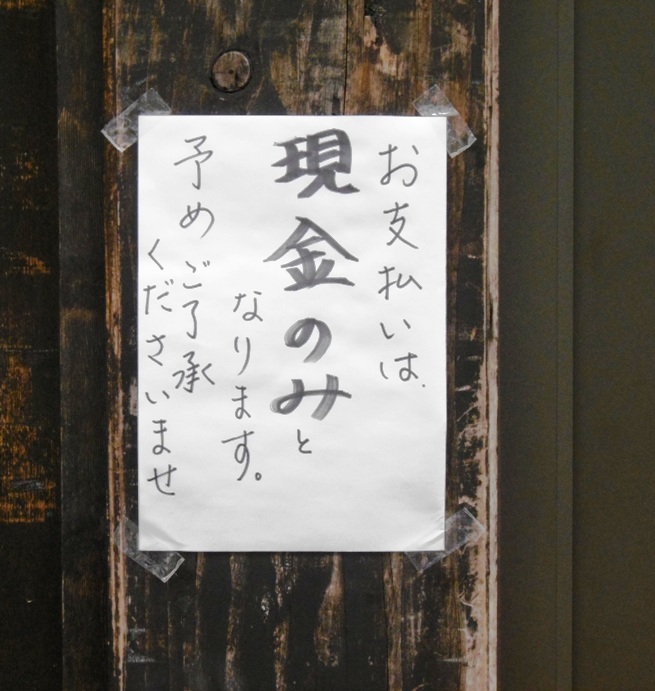 お支払いは、
現金のみと
なります。
予めご了承
くださいませ